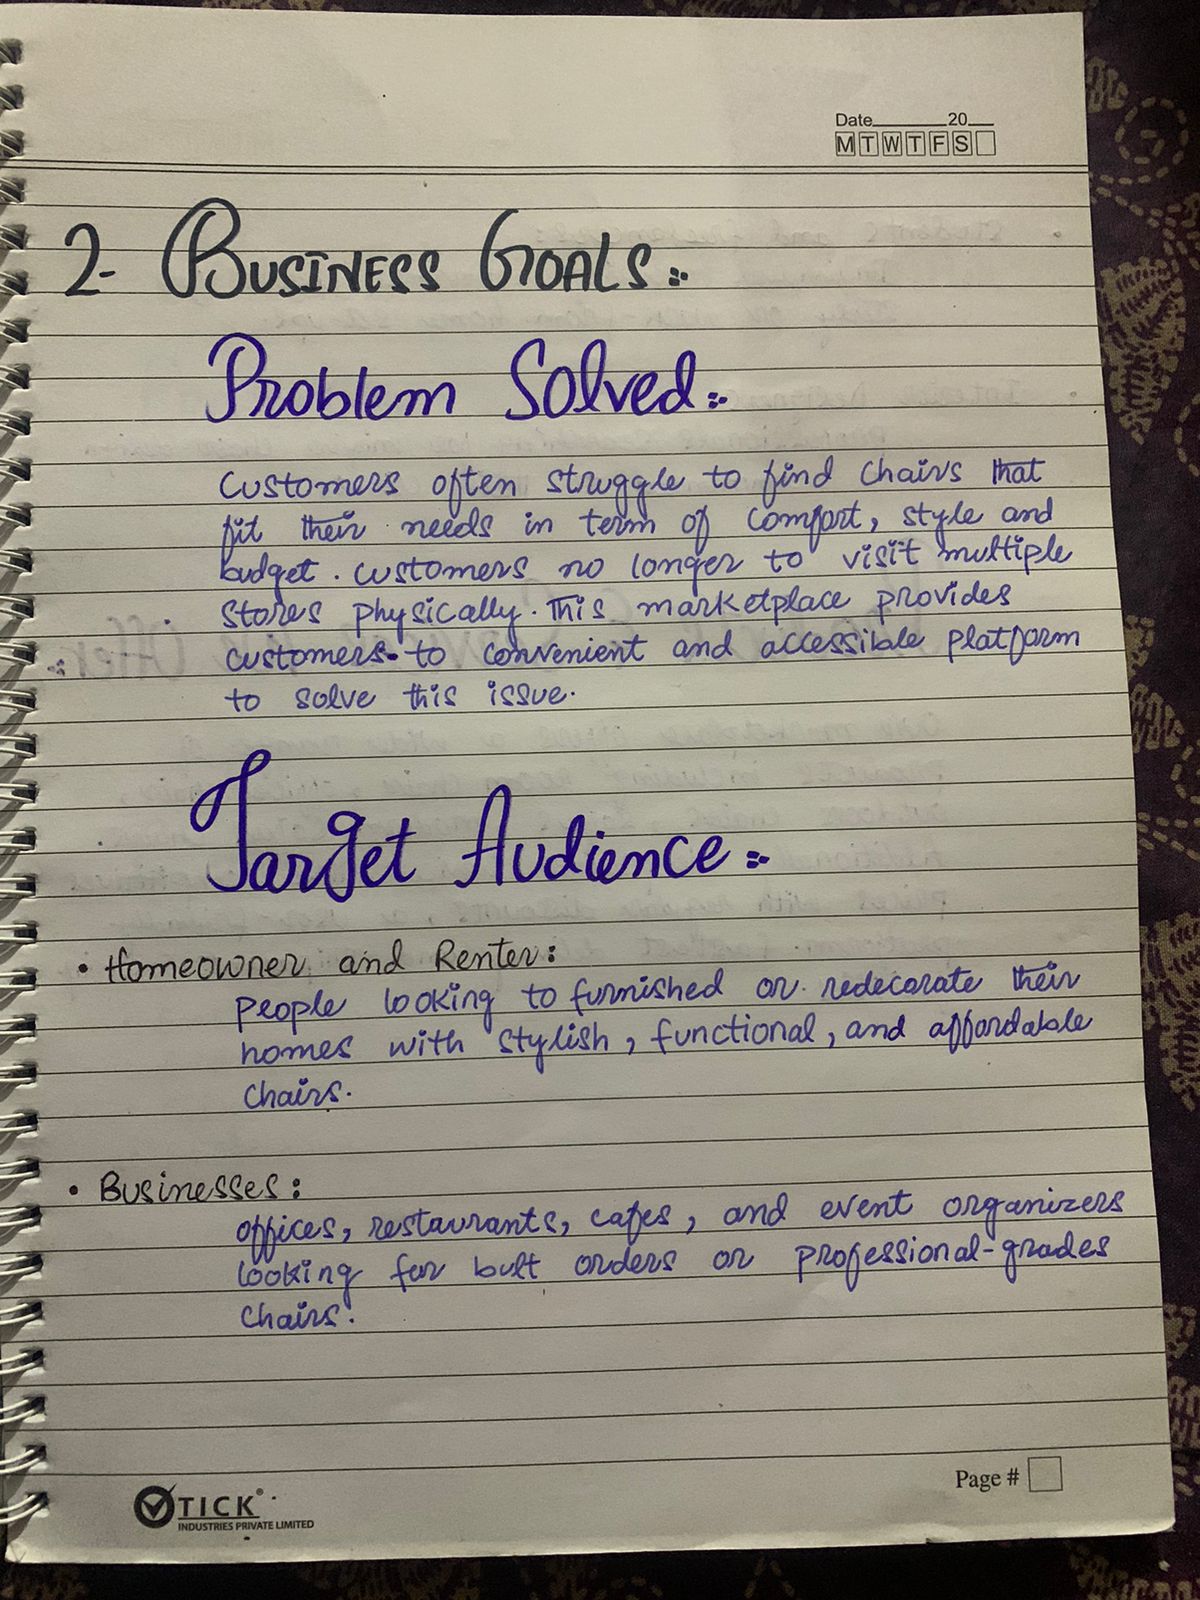 Date______20__
M T W T F S
2- BUSINESS GOALS:-
Problem Solved:-
Customers often struggle to find chairs that
fit their needs in term of comfort, style and
budget. customers no longer to visit multiple
stores physically. This marketplace provides
customers to convenient and accessible platform
to solve this issue.
Target Audience:-
• Homeowner and Renter:
People looking to furnished or redecorate their
homes with stylish, functional, and affordable
chairs.
• Businesses:
offices, restaurants, cafes, and event organizers
looking for bult orders or professional-grades
chairs.
Page #
TICK®
INDUSTRIES PRIVATE LIMITED